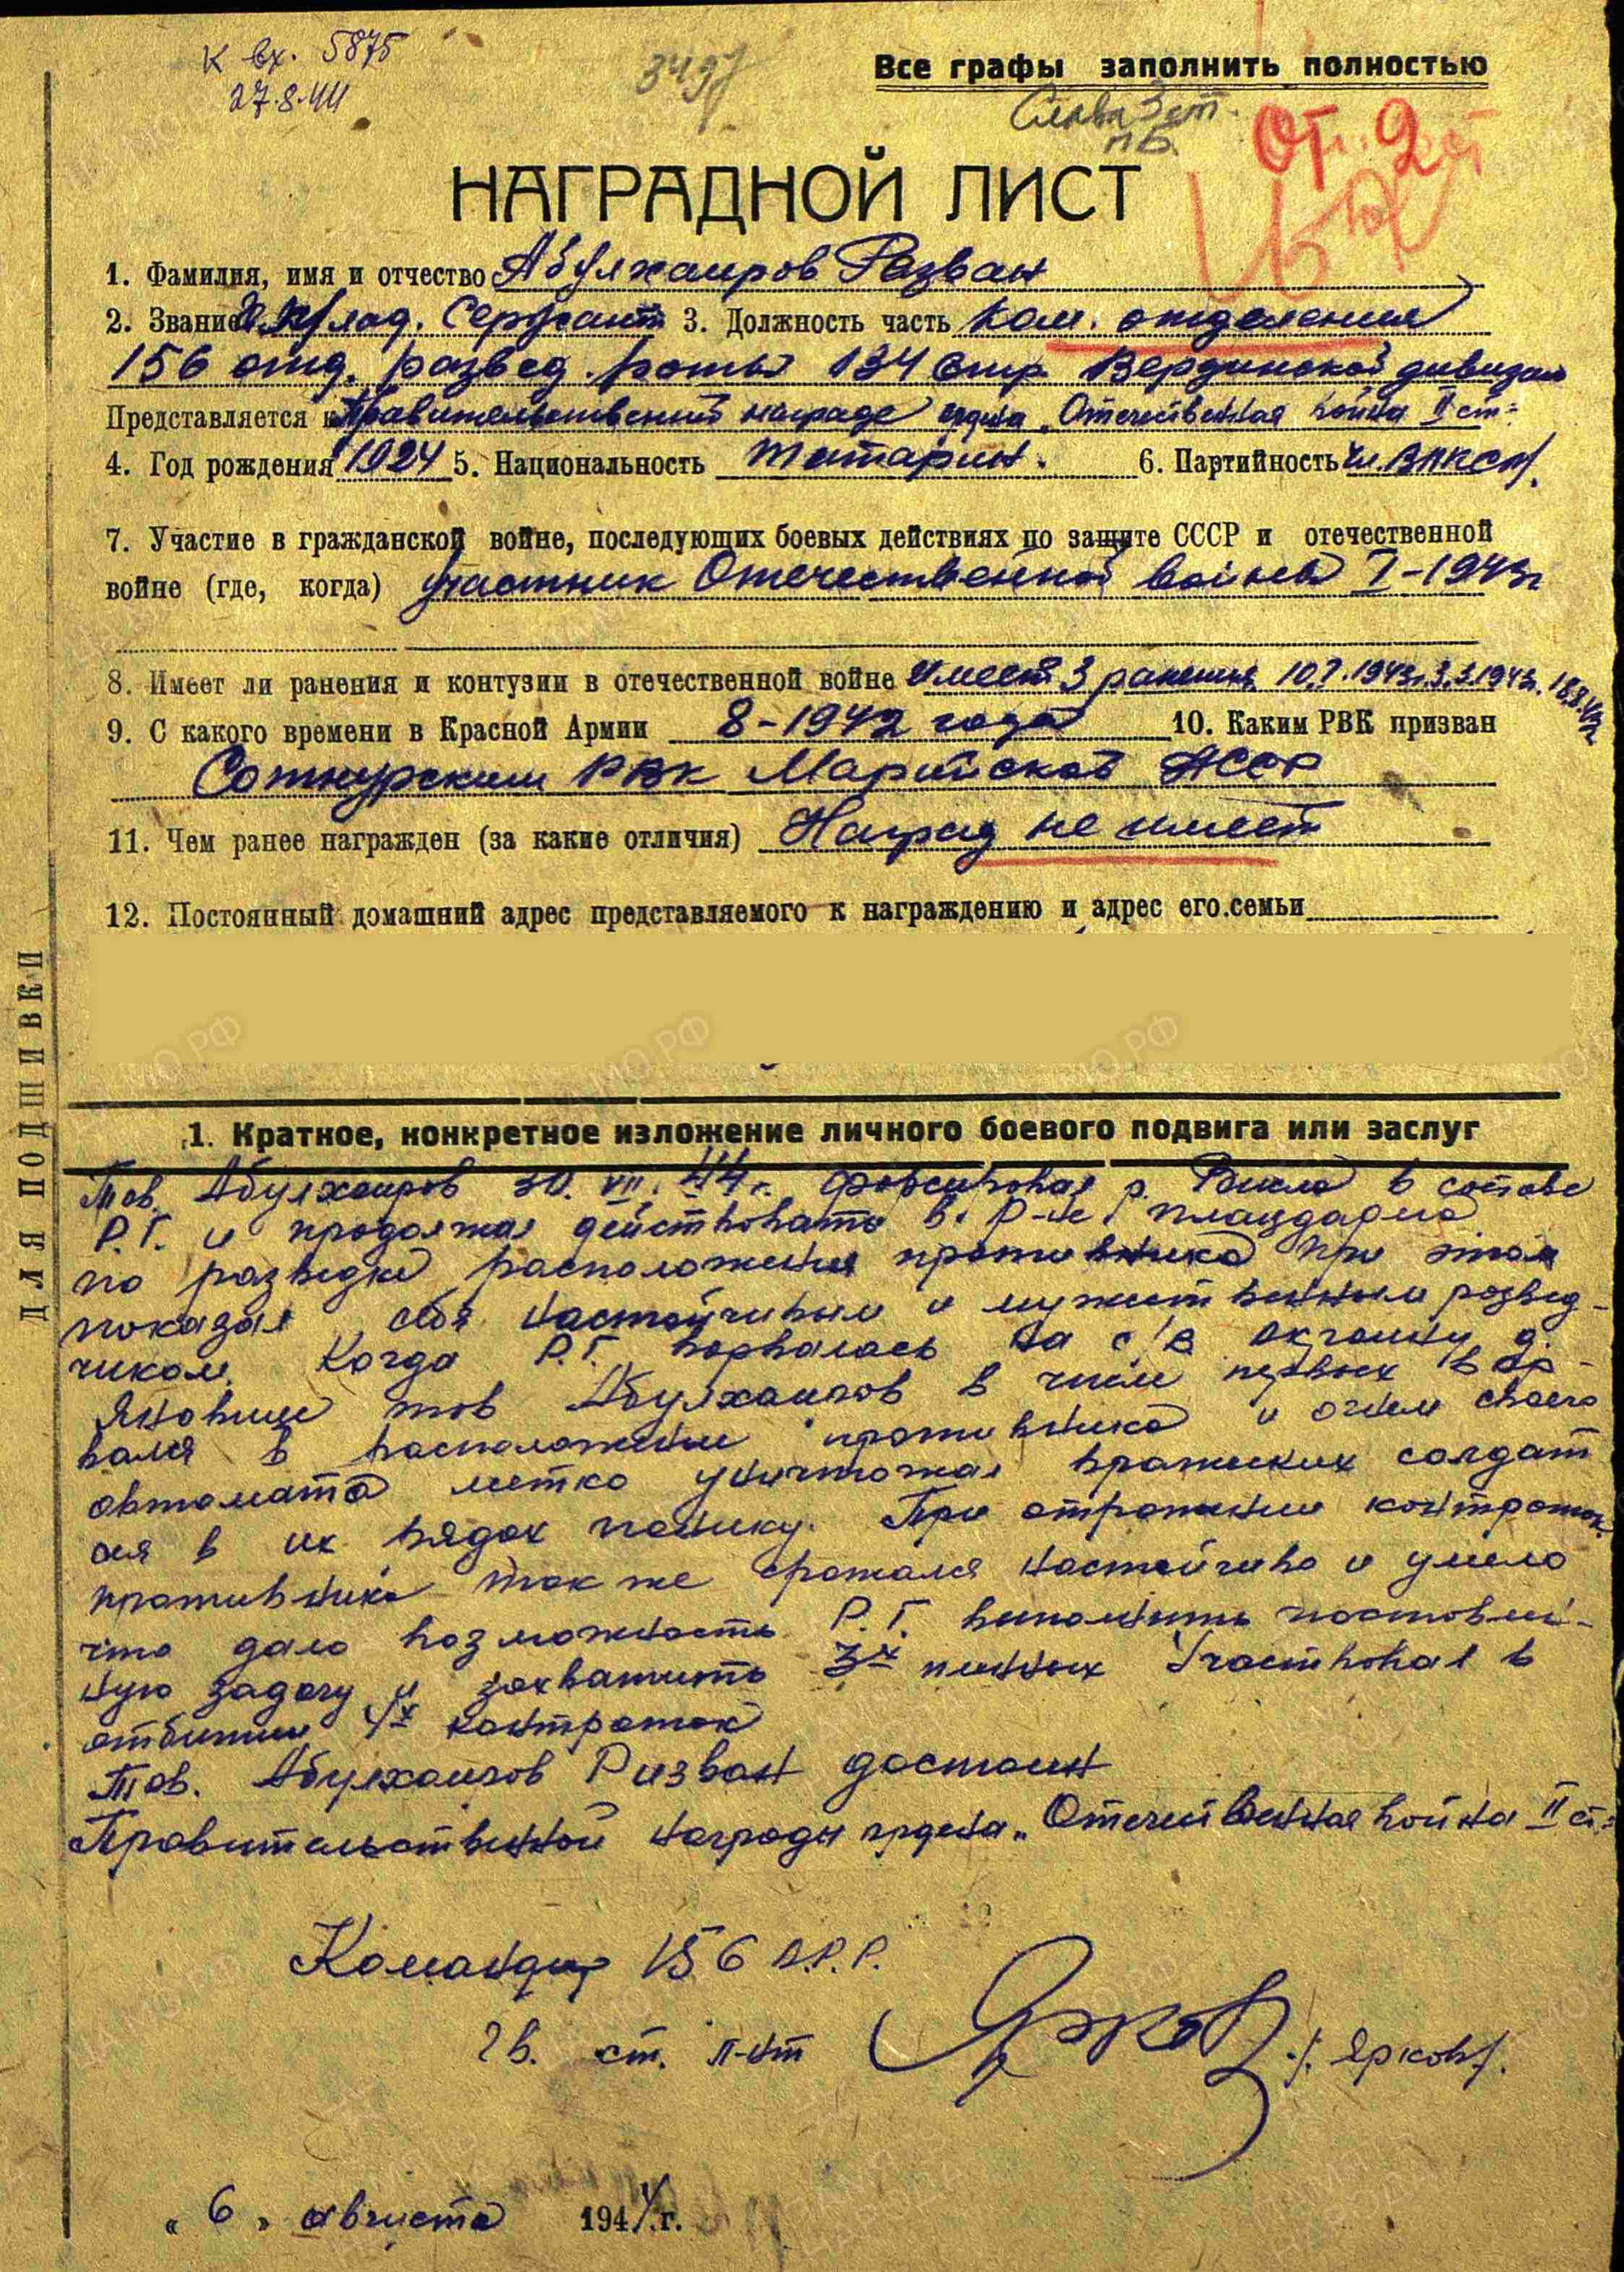 к вх. 5875
27.8.44
3497
Все графы заполнить полностью
Слава 3 ст.
От. 2 ст
НАГРАДНОЙ ЛИСТ
1. Фамилия, имя и отчество Абулхаиров Разван
2. Звание Млад. Сержант 3. Должность часть Ком. отделения
156 отд. развед. роты 134 Стр. Вердинской дивизии
Представляется к Правительственной награде ордена „Отечественная война II ст=
4. Год рождения 1924 5. Национальность татарин. 6. Партийность чл. ВЛКСМ.
7. Участие в гражданской войне, последующих боевых действиях по защите СССР и отечественной
войне (где, когда) участник Отечественной войны I-1943г
8. Имеет ли ранения и контузии в отечественной войне Имеет 3 ранения 10.7.1943г. 3.3.1943г. 18.8.43г
9. С какого времени в Красной Армии 8-1942 года 10. Каким РВК призван
Сотнурским РВК Марийской АССР
11. Чем ранее награжден (за какие отличия) Наград не имеет
12. Постоянный домашний адрес представляемого к награждению и адрес его семьи
ДЛЯ ПОДШИВКИ
1. Краткое, конкретное изложение личного боевого подвига или заслуг
Тов. Абулхаиров 30. VII. 44 г. форсировал р. Висла в составе
Р.Г. и продолжал действовать в р-не плацдарма
по разведке расположения противника при этом
показал себя настойчивым и мужественным развед-
чиком. Когда Р.Г. ворвалась на с/в окраину д.
Яновице тов Абулхаиров в числе первых вор-
вался в расположение противника и огнем своего
автомата метко уничтожал вражеских солдат
сея в их рядах панику. При отражении контратак
противника так же сражался настойчиво и умело
что дало возможность Р.Г. выполнить поставлен-
ную задачу и захватить 3х пленных Участвовал в
отбитии 4х контратак
Тов. Абулхаиров Ризван достоин
Правительственной награды ордена „Отечественная война II ст.=
Командир 156 О.Р.Р.
Гв. ст. л-нт Ярков /. Ярков/.
„ 6 „ августа 1944.г.